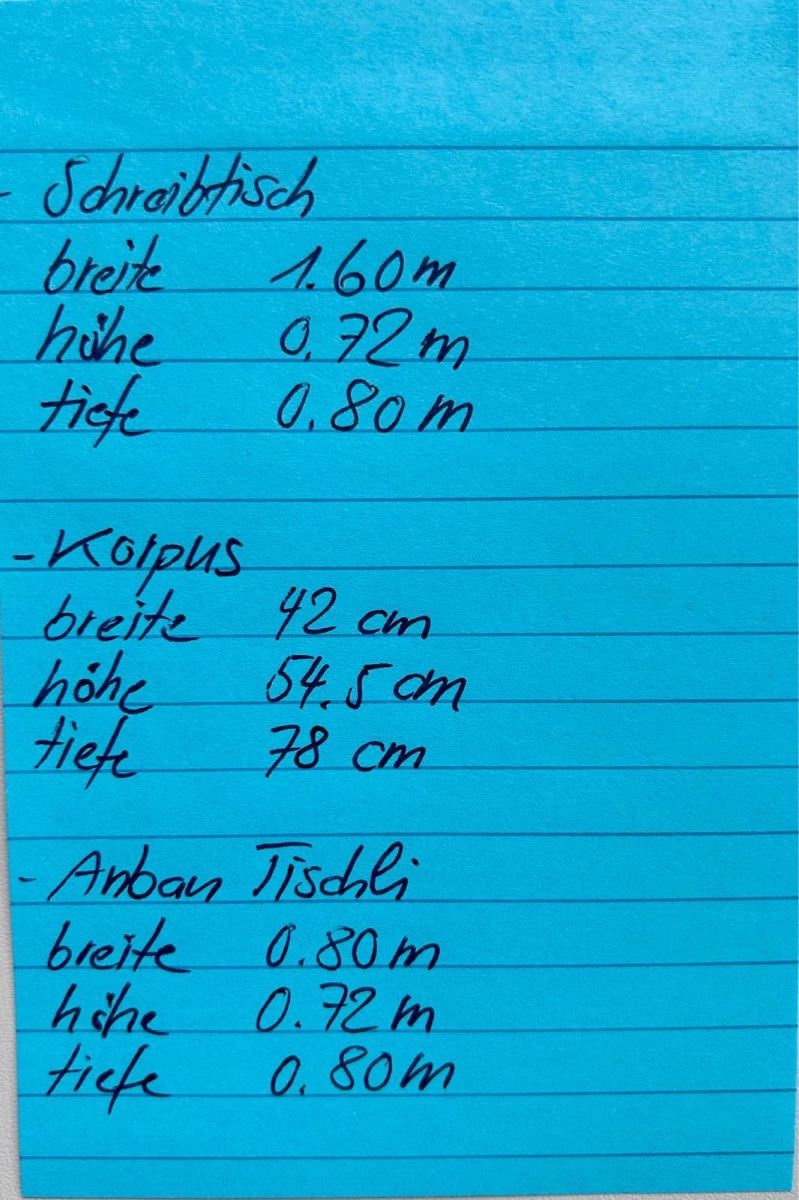 - Schreibtisch
breite 1.60 m
höhe 0.72 m
tiefe 0.80 m
- Korpus
breite 42 cm
höhe 54.5 cm
tiefe 78 cm
- Anbau Tischli
breite 0.80 m
höhe 0.72 m
tiefe 0.80 m